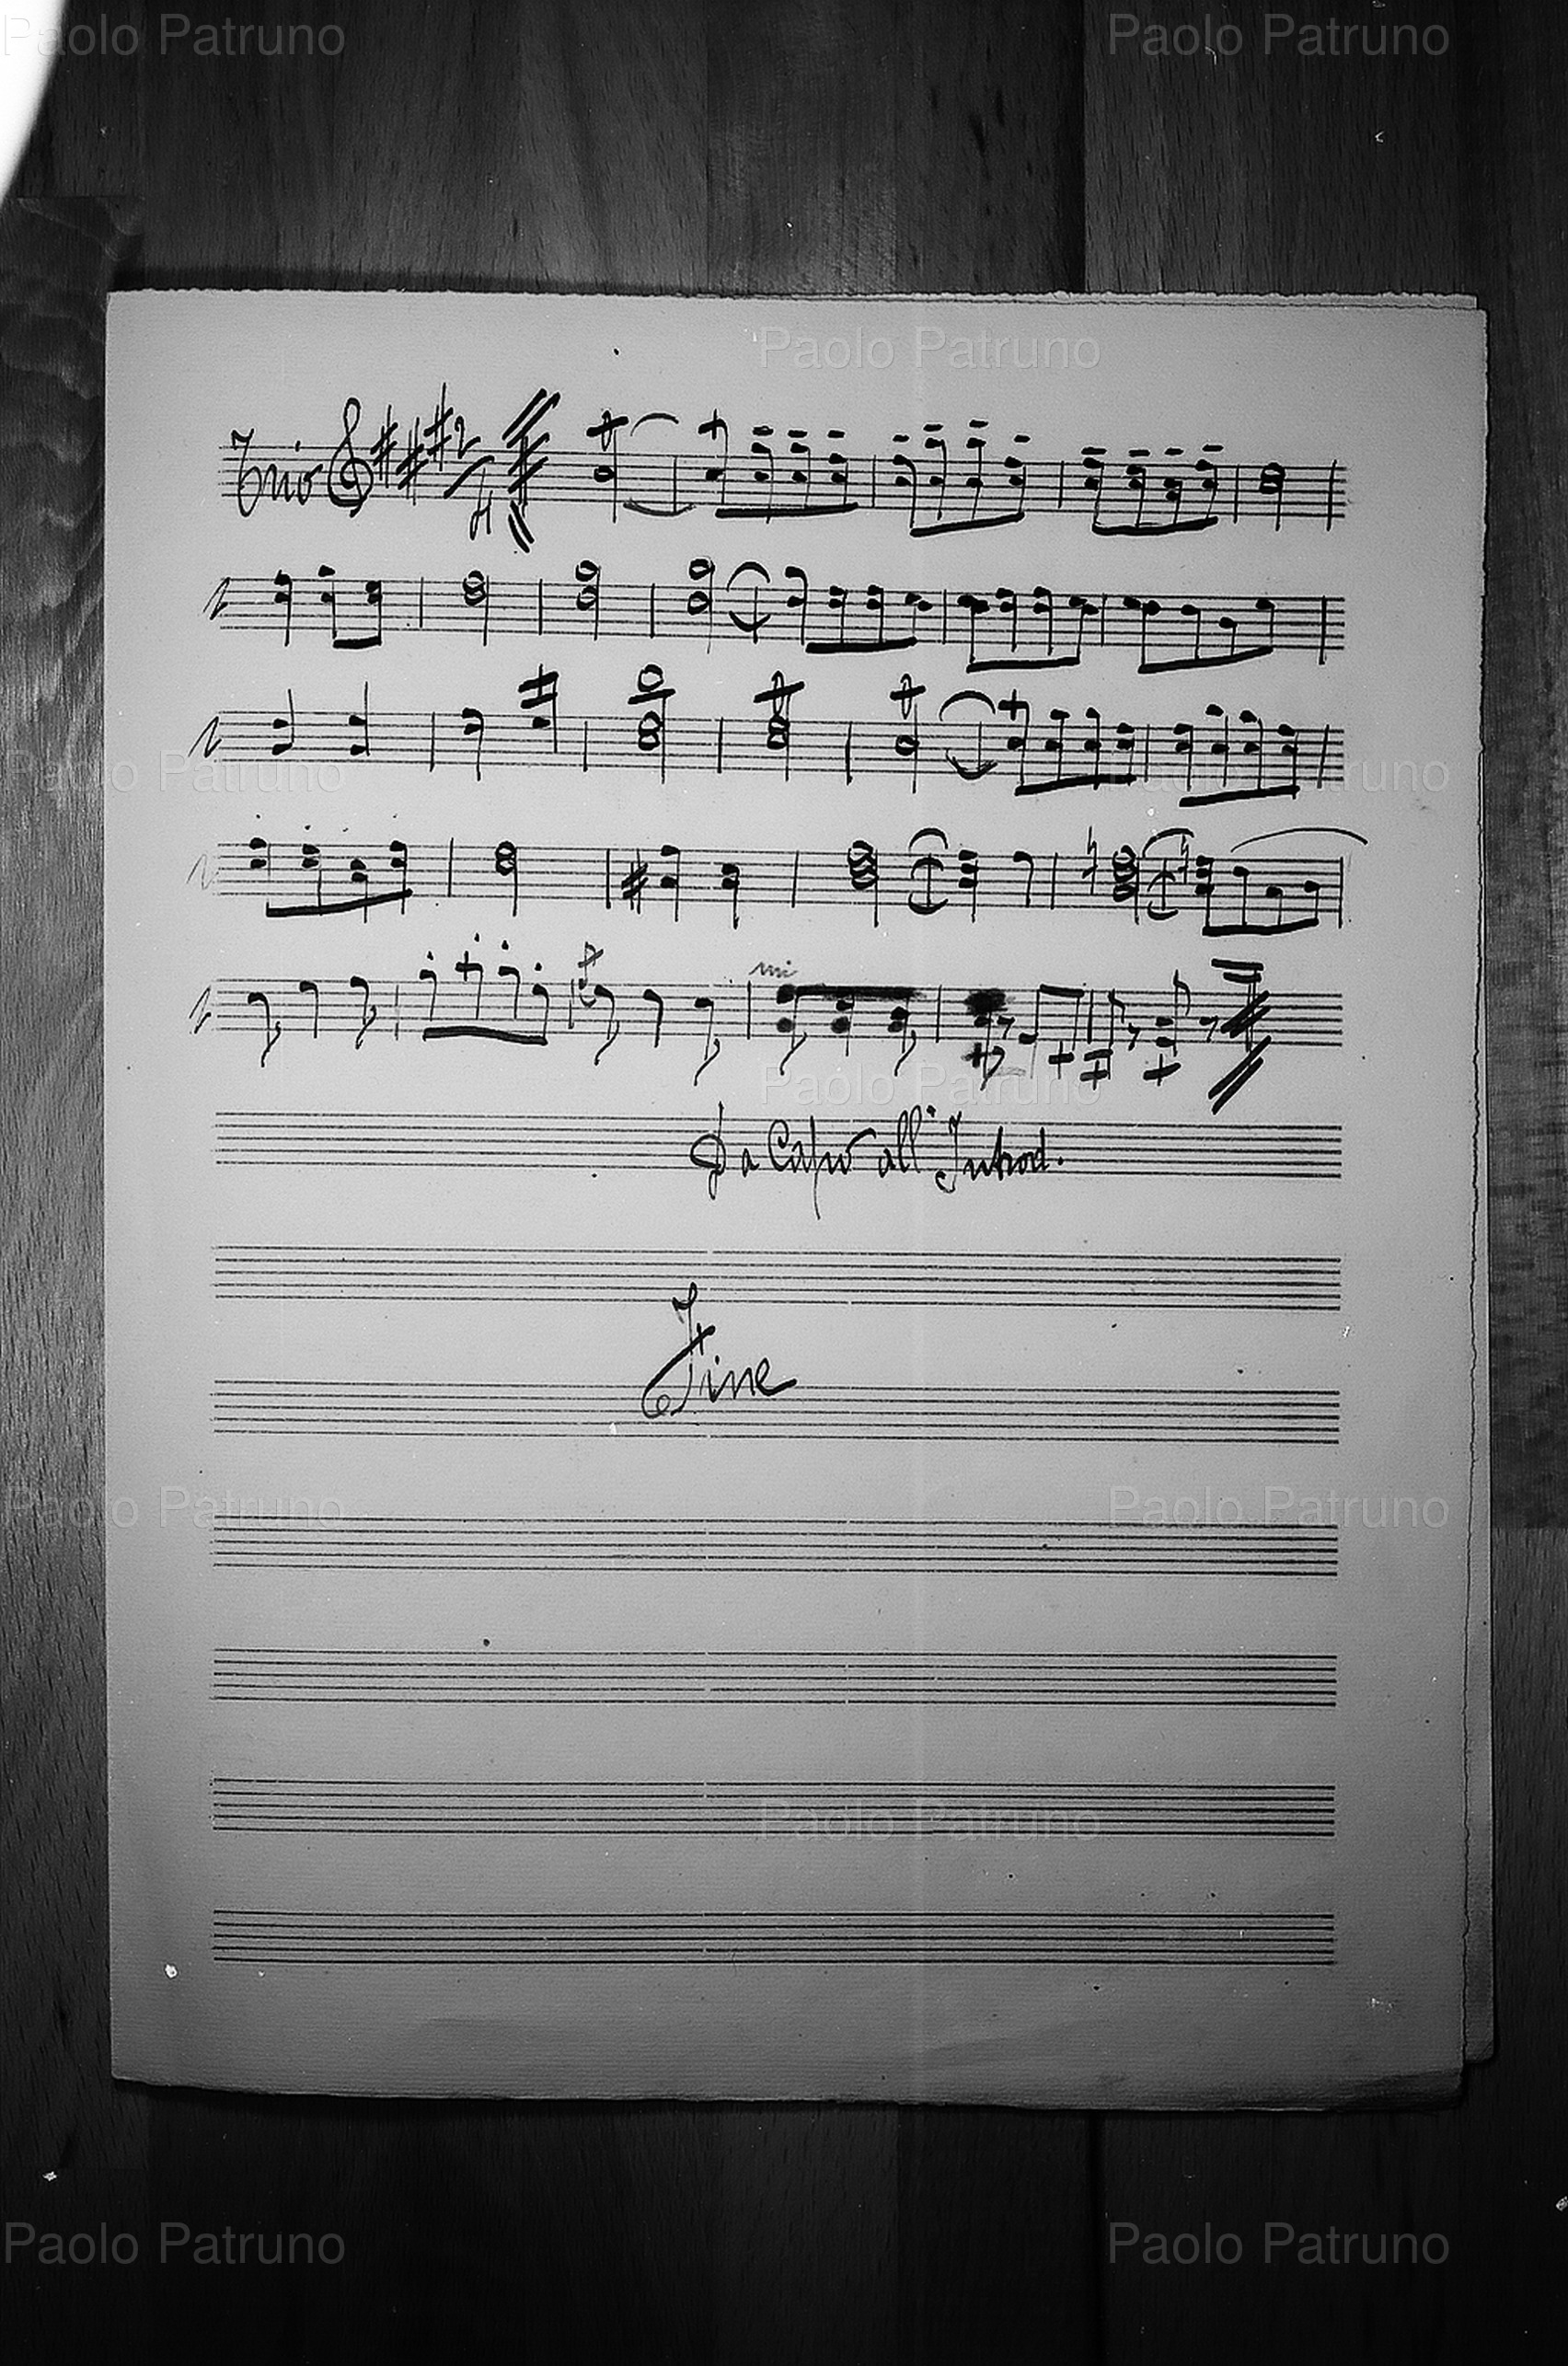 Paolo Patruno Paolo Patruno
Paolo Patruno
Trio 2/4
Paolo Patruno Paolo Patruno
mi
Paolo Patruno
Da Capo all'Introd.
Fine
Paolo Patruno Paolo Patruno
Paolo Patruno
Paolo Patruno Paolo Patruno